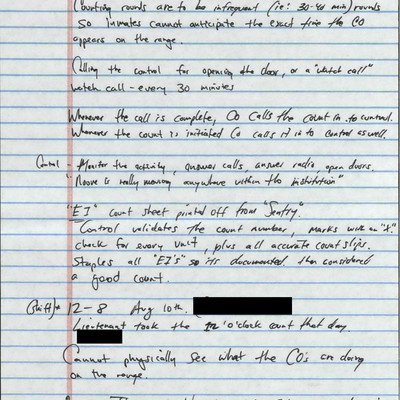 Counting rounds are to be infrequent (ie: 30-40 min) rounds
So inmates cannot anticipate the exact time the CO
appears on the range.
Calling the control for opening the door, or a "watch call"
watch call - every 30 minutes
Whenever the call is complete, CO calls the count in to control.
Whenever the count is initiated Co calls it in to control as well.
Control - Monitor the activity, answer calls, answer radio open doors.
"Noone is really moving anywhere within the institution"
"EI" count sheet printed off from "Sentry".
Control validates the count number, marks with an "X."
check for every unit, plus all accurate count slips.
Staples all "EI's" so its documented then considered
a good count.
(Shift)* 12-8 Aug 10th.
Lieutenant took the 12 'o'clock count that day
Cannot physically see what the CO's are doing
on the range.